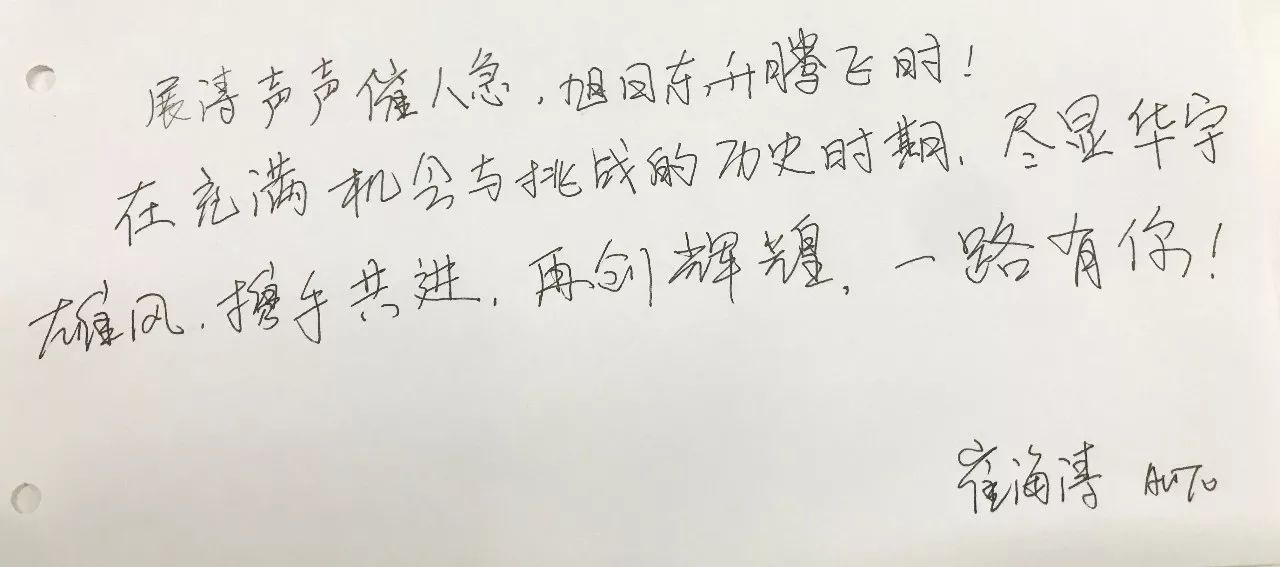 展涛声声催人急，旭日东升腾飞时！
在充满机会与挑战的历史时期，尽显华宇
雄风，携手共进，再创辉煌，一路有你！
崔海涛 AUTO